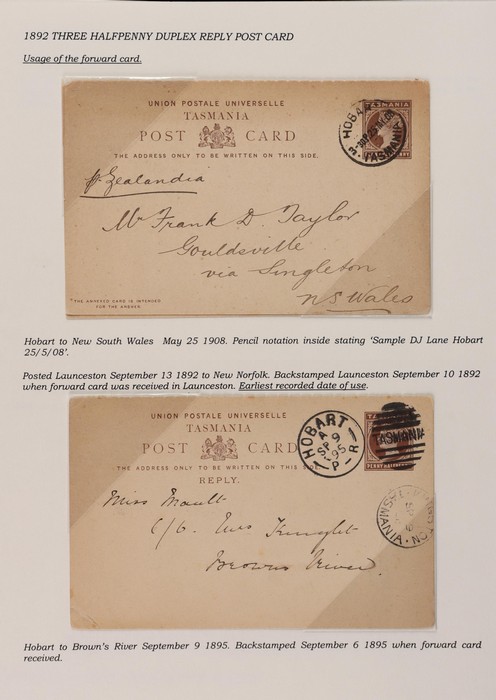 1892 THREE HALFPENNY DUPLEX REPLY POST CARD
Usage of the forward card.
UNION POSTALE UNIVERSELLE
TASMANIA
POST CARD
THE ADDRESS ONLY TO BE WRITTEN ON THIS SIDE.
TASMANIA
HOBART
TASMANIA
p. Zealandia
Mr Frank D. Taylor
Gouldsville
via Singleton
NS Wales
*THE ANNEXED CARD IS INTENDED
FOR THE ANSWER.
Hobart to New South Wales May 25 1908. Pencil notation inside stating 'Sample DJ Lane Hobart
25/5/08'.
Posted Launceston September 13 1892 to New Norfolk. Backstamped Launceston September 10 1892
when forward card was received in Launceston. Earliest recorded date of use.
UNION POSTALE UNIVERSELLE
TASMANIA
POST CARD
THE ADDRESS ONLY TO BE WRITTEN ON THIS SIDE.
REPLY.
HOBART
A
SP 9
95
P R
TASMANIA
PENNY HALF
Miss Moult
c/o Mrs Knight
Browns River
TASMANIA
Hobart to Brown's River September 9 1895. Backstamped September 6 1895 when forward card
received.